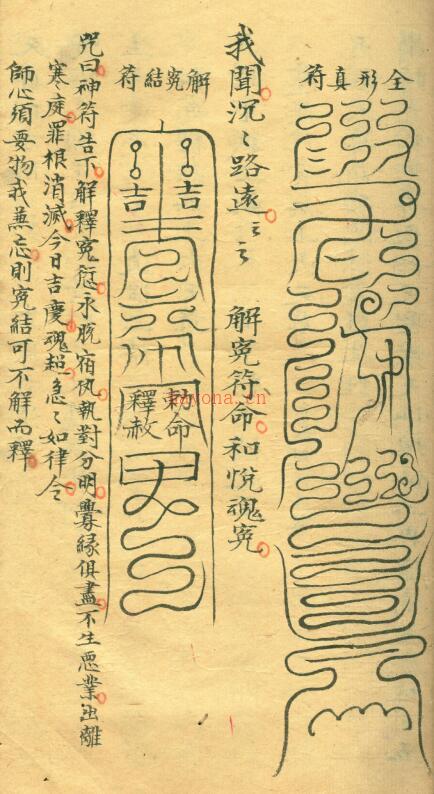 全形真符
我聞沉〻路遠
解冤符命和悅魂冤
解冤結符
吉 吉
勅命
釋赦
咒曰神符告下解釋冤愆永脫宿仇執對分明釁緣俱盡不生惡業出離
寒庭罪根消滅今日吉慶魂超急〻如律令
師心須要物我兼忘則冤結可不解而釋